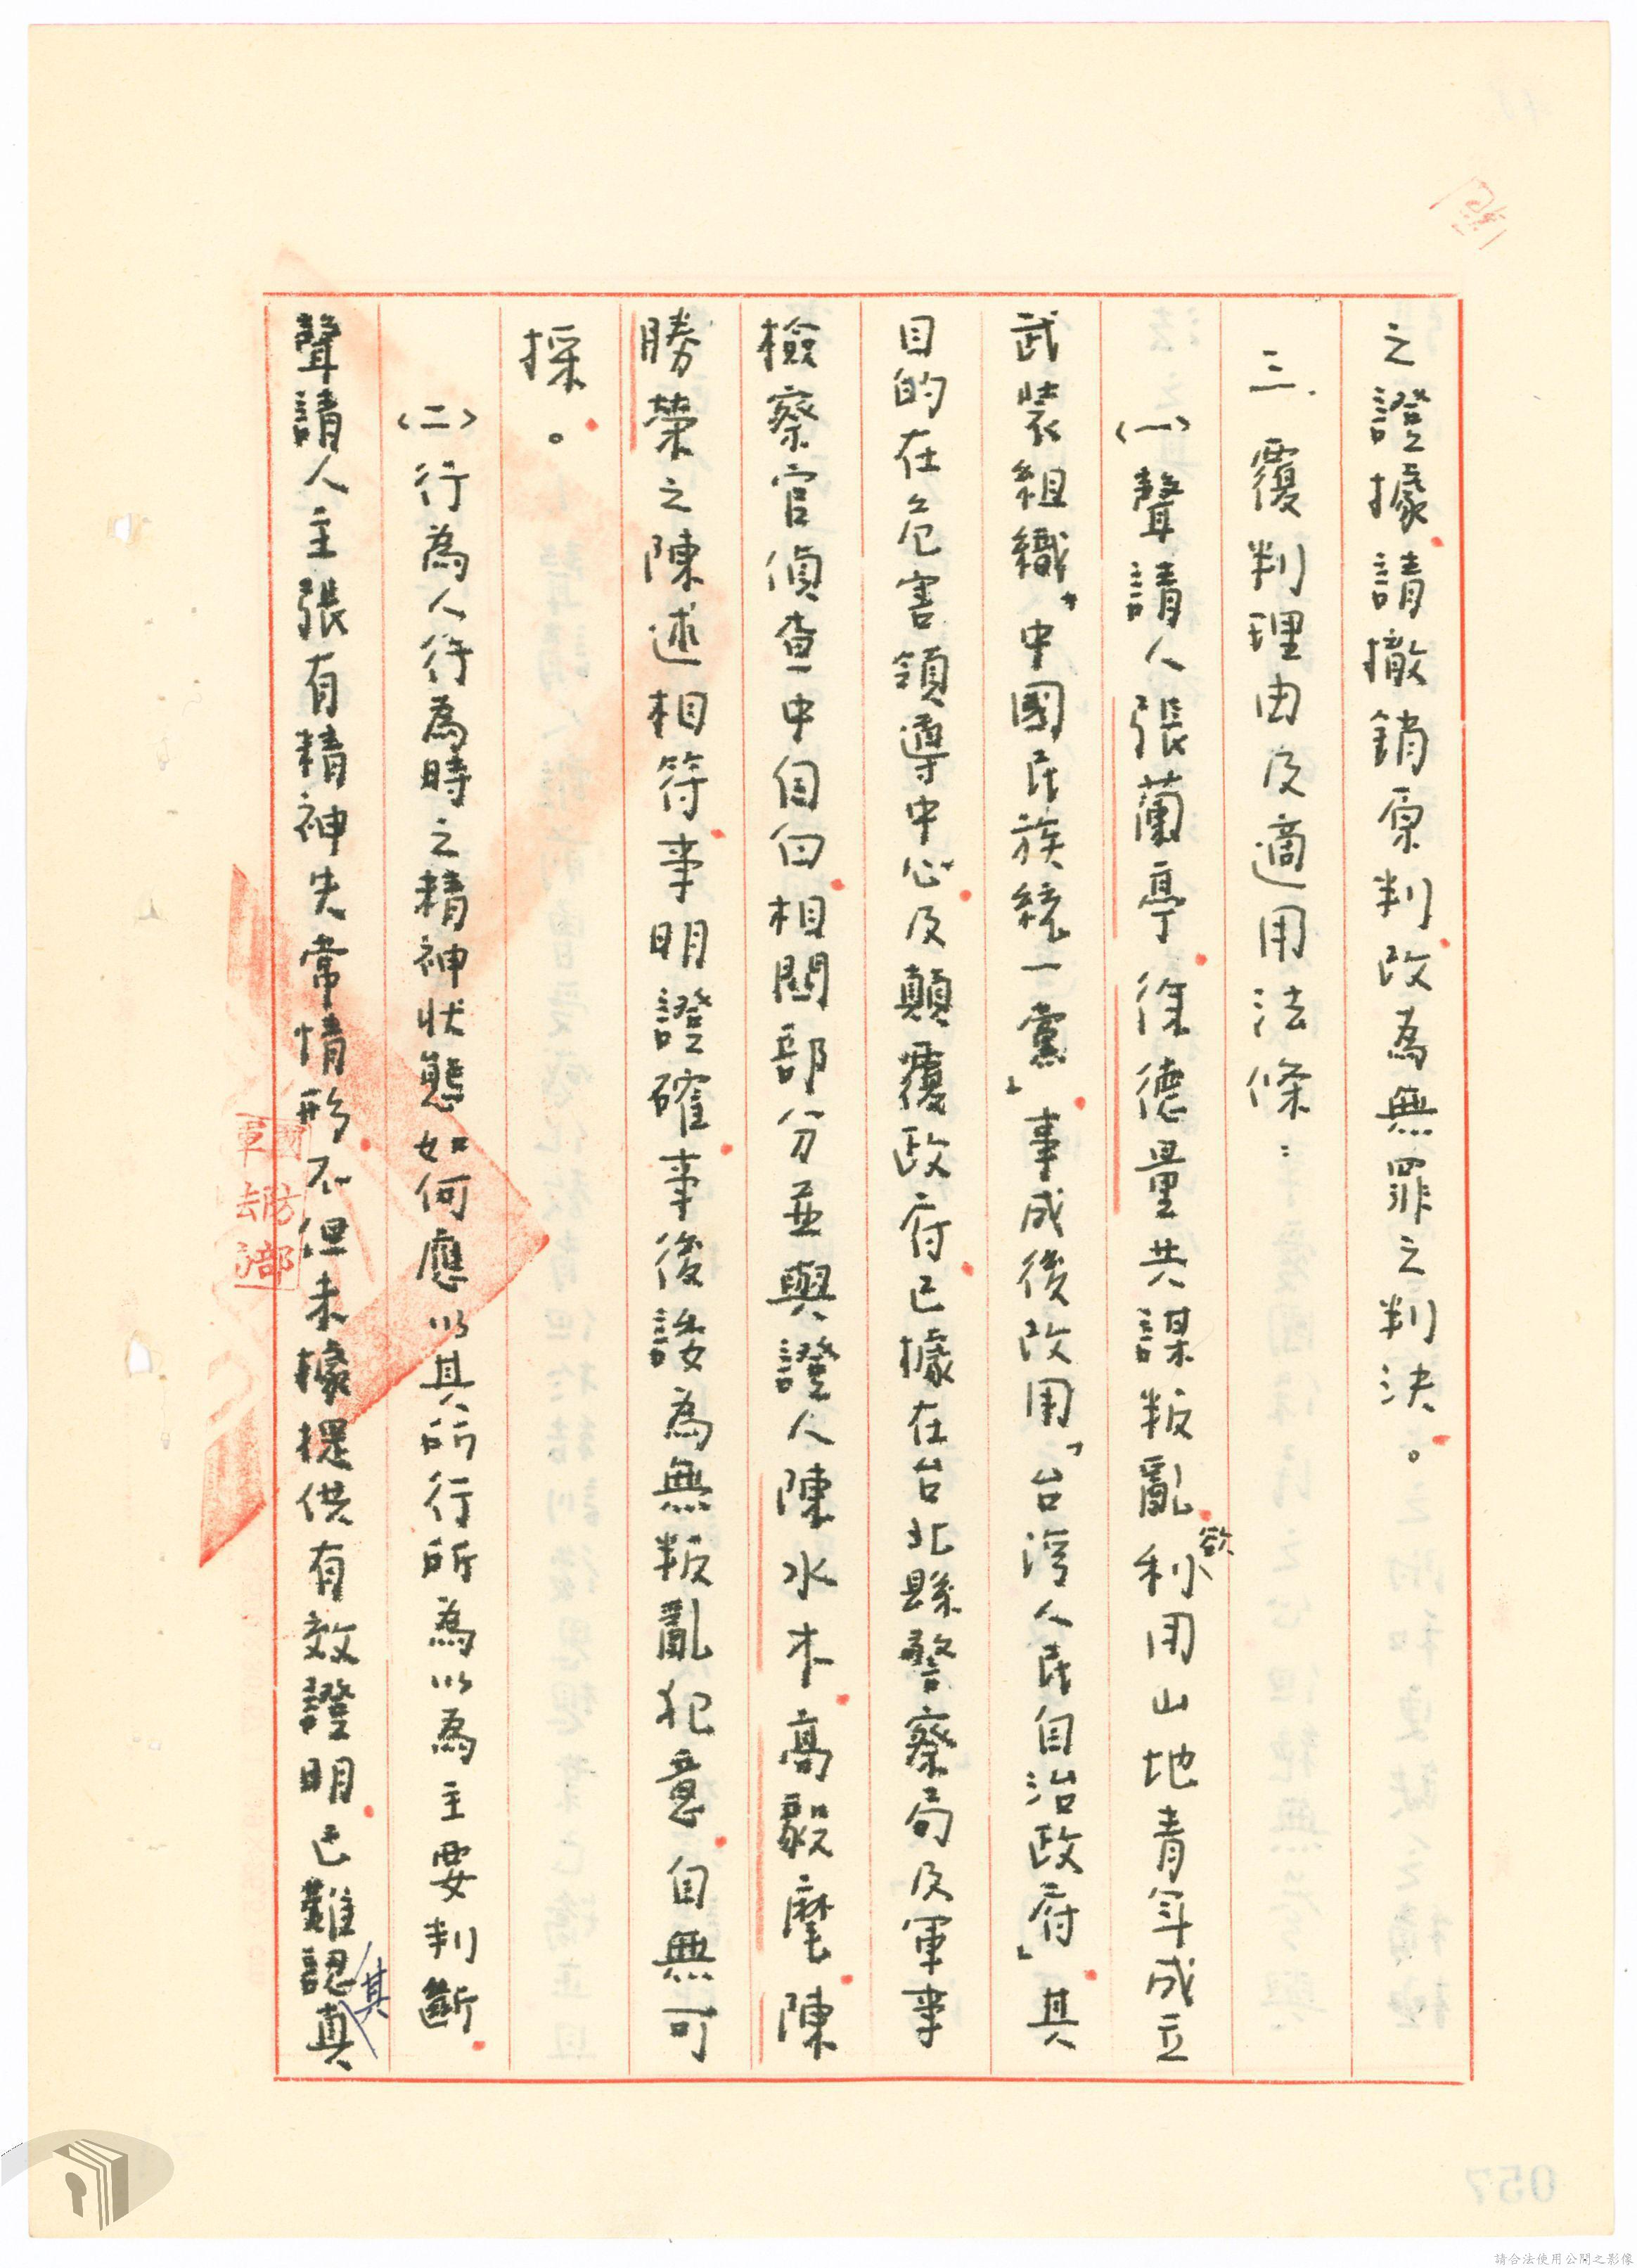 之證據請撤銷原判改為無罪之判決。
三、覆判理由及適用法條：
㈠聲請人張蘭亭徐德量共謀叛亂欲利用山地青年成立
武裝組織「中國民族統一黨」事成後改用「台灣人民自治政府」其
目的在危害領導中心及顛覆政府已據在台北縣警察局及軍事
檢察官偵查中自白相關部分並與證人陳水木高毅麾陳
勝榮之陳述相符事明證確事後諉為無叛亂犯意自無可
採。
㈡行為人行為時之精神狀態如何應以其所行所為以為主要判斷
聲請人主張有精神失常情形不但未據提供有效證明已難認真
其
國防部
軍法
057
請合法使用公開之影像